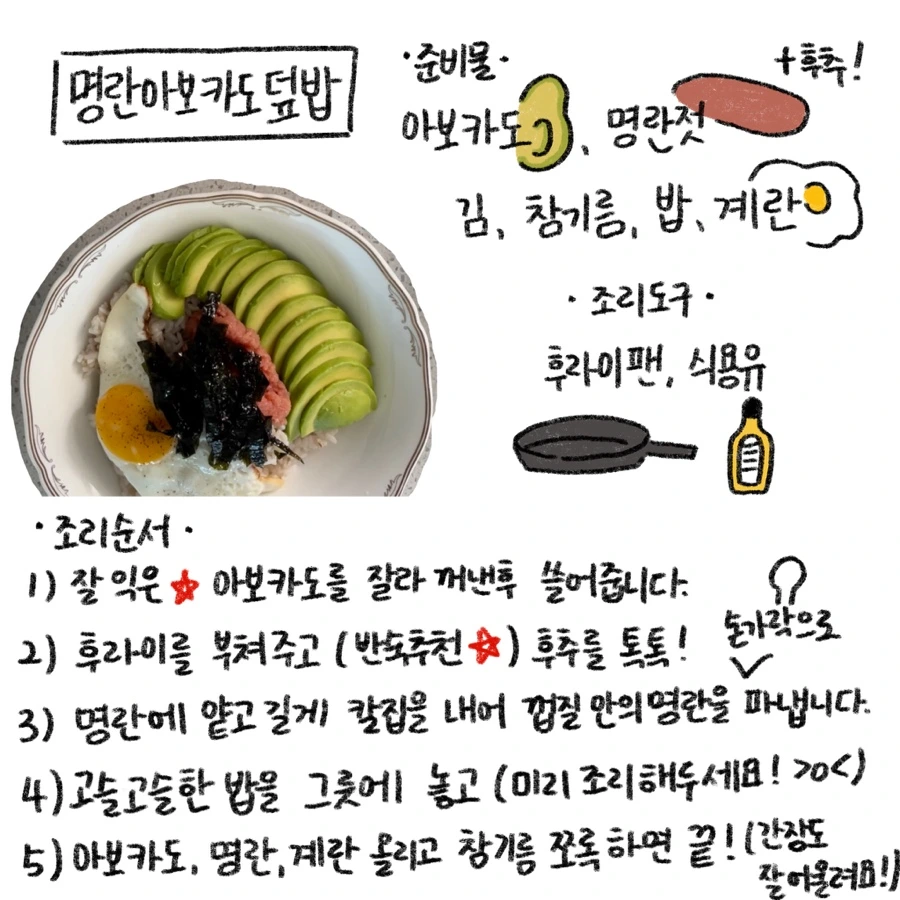 명란아보카도덮밥
·준비물·
+후추!
아보카도, 명란젓
김, 참기름, 밥, 계란
·조리도구·
후라이팬, 식용유
·조리순서·
1) 잘 익은☆ 아보카도를 잘라 꺼낸후 쓸어줍니다.
2) 후라이를 부쳐주고 (반숙추천☆) 후추를 톡톡!
손가락으로
3) 명란에 얕고 길게 칼집을 내어 껍질 안의 명란을 ✓파냅니다.
4) 고슬고슬한 밥을 그릇에 놓고 (미리 조리해두세요! >o<)
5) 아보카도, 명란, 계란 올리고 참기름 쪼록하면 끝! (간장도
잘어울려요!)